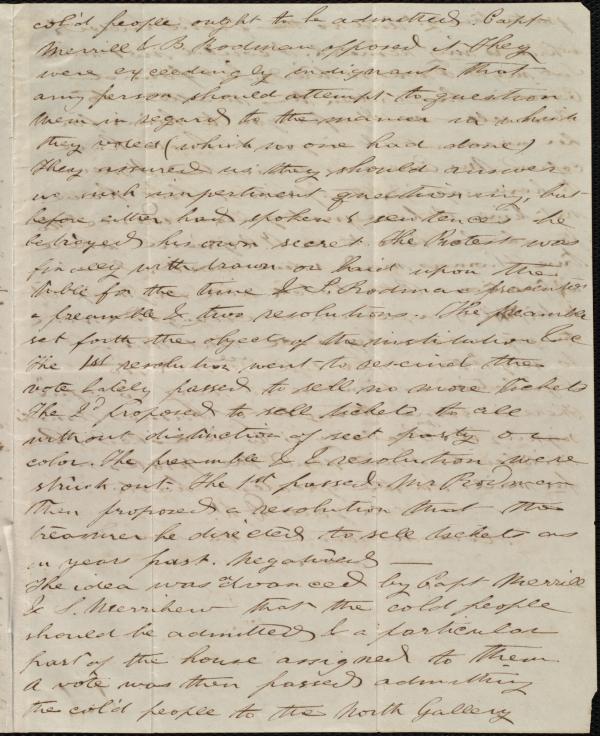 col'd people ought to be admitted. Capt
Merrill & B. Rodman opposed it. They
were exceedingly indignant that
any person should attempt to question
them in regard to the manner in which
they voted (which no one had done)
They assured us they should answer
no such impertinent questioning, but
before either had spoken 6 sentences he
betrayed his own secret. The Protest was
finally withdrawn or laid upon the
table for the time & S. Rodman presented
a preamble & two resolutions. The preamble
set forth the objects of the institution &c
The 1st resolution went to rescind the
vote lately passed to sell no more tickets
The 2d proposed to sell tickets to all
without distinction of sect party or
color. The preamble & 2 resolution were
struck out. The 1st passed. Mr Rodman
then proposed a resolution that the
treasurer be directed to sell tickets as
in years past. Negatived —
The idea was advanced by Capt Merrill
& S. Merrihew that the cold people
should be admitted & a particular
part of the house assigned to them
A vote was then passed admitting
the col'd people to the North Gallery